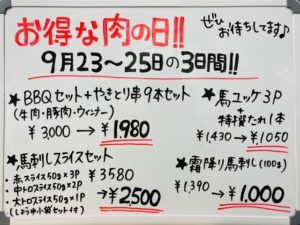 お得な肉の日!!
ぜひお待ちしてます♪
9月23〜25日の3日間!!
★BBQセット+やきとり串9本セット
(牛肉・豚肉・ウィンナー)
¥3,000→¥1980
★馬ユッケ3P
+
特撰たれ1本
¥1,430→¥1,050
★馬刺しスライスセット
・赤スライス50g×3P
・中トロスライス50g×2P
・大トロスライス50g×1P
(しょうゆ小袋セット付)
¥3580
→¥2,500
★霜降り馬刺し(100g)
¥1,390→¥1,000